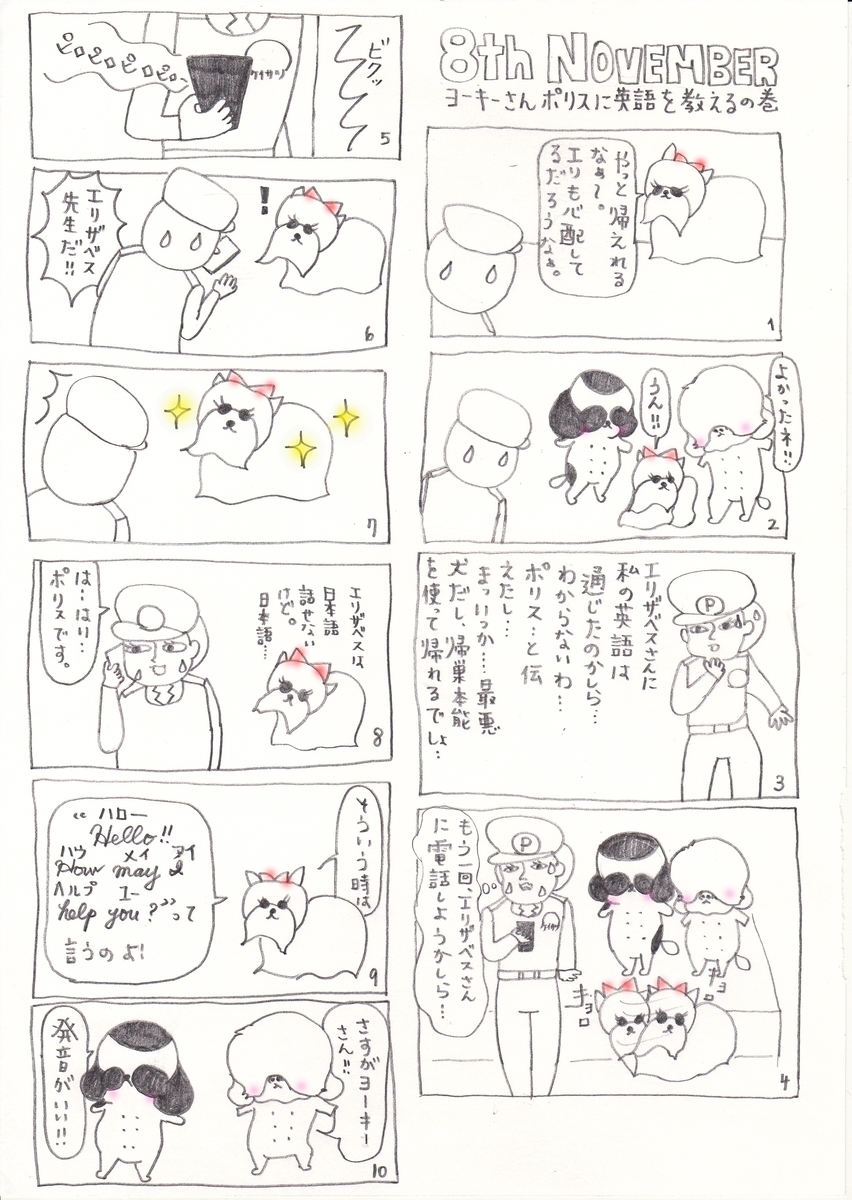 8th NOVEMBER
ヨーキーさんポリスに英語を教えるの巻
やっと帰えれる
なぁ〜。
エリも心配して
るだろうなぁ。
1
よかったネ!!
うん!!
2
エリザベスさんに
私の英語は
通じたのかしら…
わからないわ…
ポリス…と伝
えたし…
まっいっか…最悪
犬だし、帰巣本能
を使って帰れるでしょ…
3
もう一回、エリザベスさん
に電話しようかしら…
P
ケイサツ
キョロ
キョロ
4
ピロピロピロピロ…
ケイサツ
ビクッ
5
!
エリザベス
先生だ!!
6
7
エリザベスは、
日本語
話せない
けど。
日本語…
は…はい…
ポリスです。
8
そういう時は
“ハロー
Hello!!
ハウ メイ アイ
How may I
ヘルプ ユー
help you?”って
言うのよ!
9
さすがヨーキー
さん!!
発音がいい!!
10